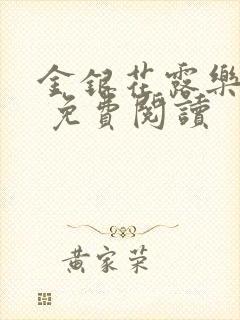 金銀花露樂
免費閱讀
黃家榮